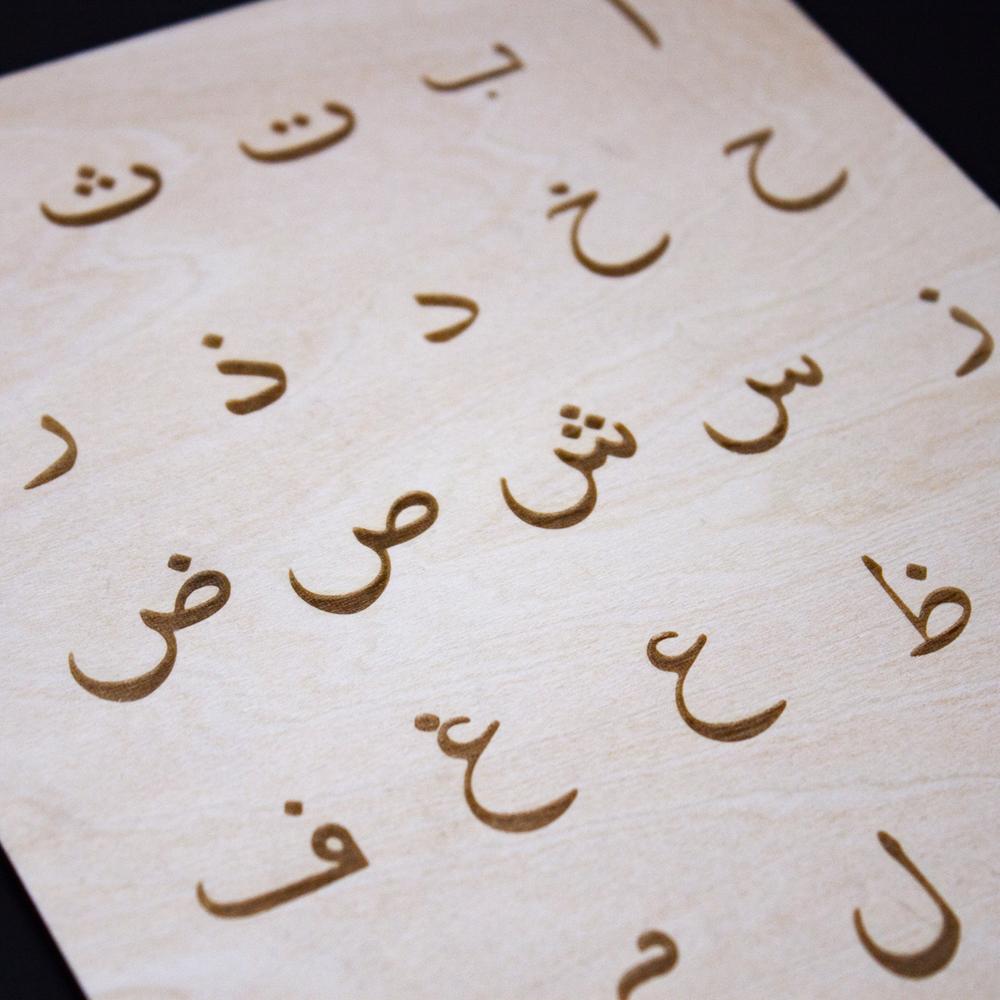 ا ب ت ث
ح خ د ذ ر
ز س ش ص ض
ظ ع غ ف
ل م